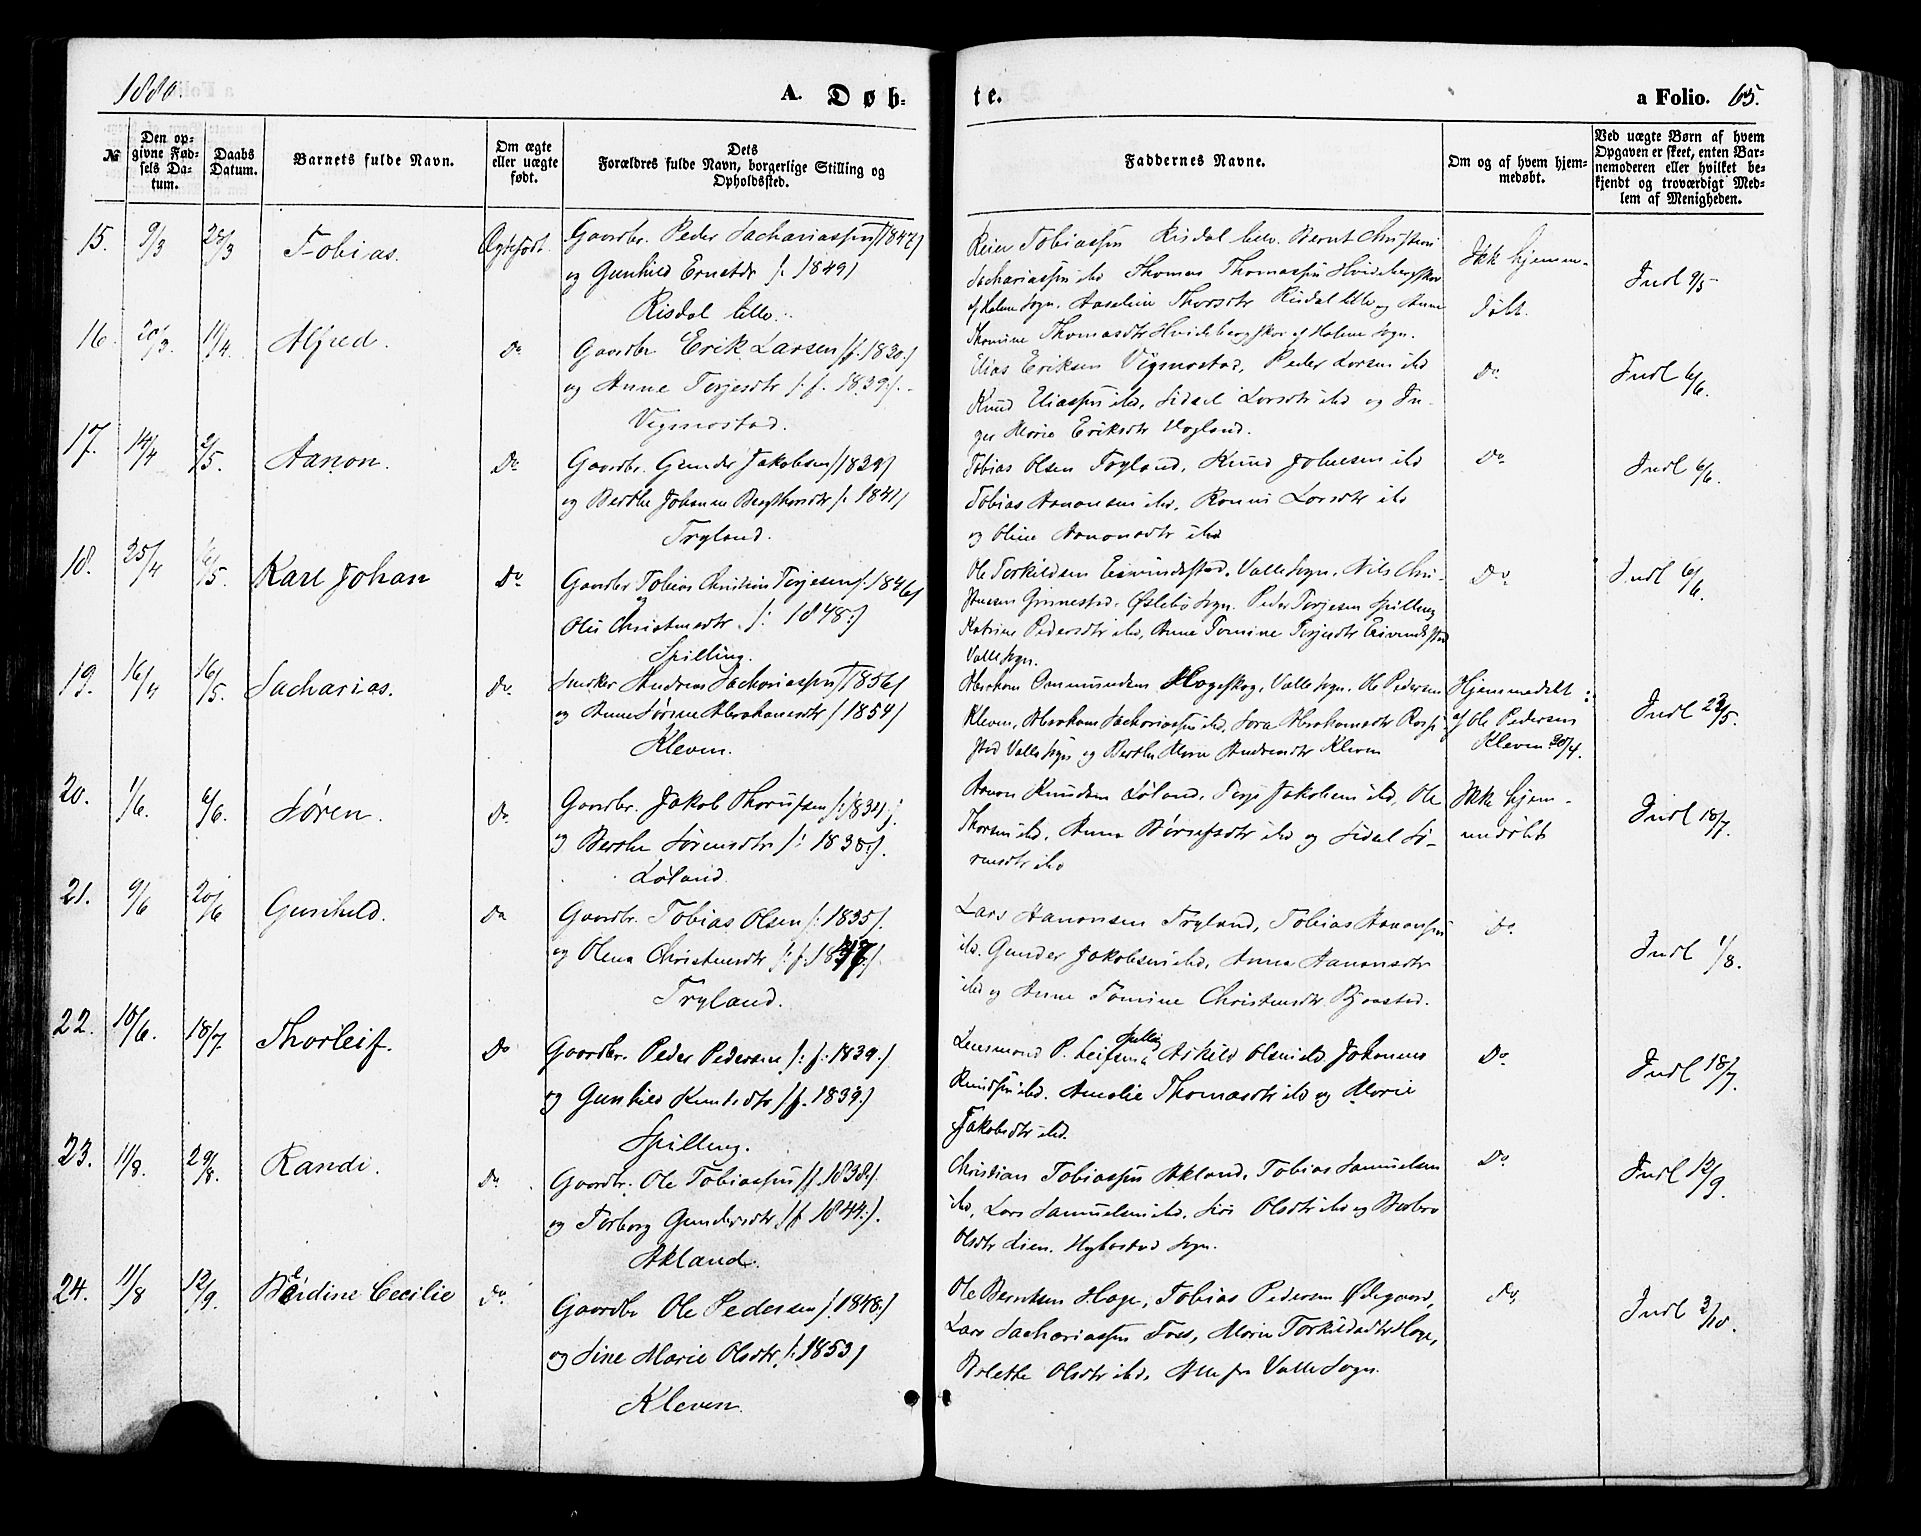 1880.
A. Døb-
te.
a Folio. 65.
№
Den op-
givne Fød-
sels Da-
tum.
Daabs
Datum.
Barnets fulde Navn.
Om ægte
eller uægte
født.
Dets
Forældres fulde Navn, borgerlige Stilling og
Opholdssted.
Faddernes Navne.
Om og af hvem hjem-
medøbt.
Ved uægte Børn af hvem
Opgaven er skeet, enten Bar-
nemoderen eller hvilket be-
kjendt og troværdigt Med-
lem af Menigheden.
15. 9/3 28/3 Tobias. Ægtefødt.
Gaardbr. Peder Sachariassen /1847/
og Gunhild Ernstdr /: 1849/
Risdal lille.
Reier Tobiassen Risdal lille. Bernt Christian
Sachariassen ibd Thomas Thomassen Hvidebergskor
af Holme Sogn. Aaseline Thorsdtr Risdal lille og Anne
Thomine Thomasdtr Hvidebergskor af Holme Sogn.
Ikke hjemme-
døbt.
Indl 9/5
16. 20/3. 11/4. Alfred. Do
Gaardbr Erik Larsen /f. 1830:/
og Anne Terjesdtr /: f. 1839:/.
Vigmostad.
Elias Eriksen Vigmostad, Peder Larsen ibd
Knud Eliassen ibd, Sidsel Larsdtr ibd og In-
ger Marie Eriksdtr Hogland.
Do
Indl 6/6.
17. 14/4 2/5. Aanon. Do
Gaardbr. Gunder Jakobsen /1839/
og Berthe Johanne Bergthorsdtr /: 1841/
Tryland.
Tobias Olsen Tryland, Knud Johnsen ibd
Tobias Aanonsen ibd, Ronni Larsdtr ibd
og Oline Aanonsdtr ibd
Do
Indl 6/6.
18. 25/4 16/5. Karl Johan Do
Gaardbr Tobias Christian Terjesen /: 1846/
og
Olis Christensdtr. /: 1848:/
Spilling.
Ole Terkildsen Eivindestad, Valle Sogn, Nils Chri-
stensen Ginnestad. Øslebø Sogn. Peder Terjesen Spilling
Katrine Pedersdtr ibd, Anne Tomine Terjesdtr Eivindestad
Valle Sogn.
Do
Indl 6/6
19. 16/4 16/5. Sacharias. Do.
Snedker Andreas Sachariassen /1856/
og Anne Sørine Abrahamsdtr /1854/
Kleven.
Abraham Ommundsen Hageskog, Valle Sogn. Ole Pedersen
Kleven, Abraham Sachariassen ibd, Sara Abrahamsdtr
stad Valle Sogn og Berthe Marie Andreasdtr Kleven
Hjemmedøbt
af Ole Pedersen
Kleven 20/4.
Indl 23/5.
20. 1/6. 6/6. Søren. Do.
Gaardbr. Jakob Thorussen /: 1834:/
og Berthe Sørensdtr /: 1838:/.
Løland.
Aanon Knudsen Løland, Terje Jakobsen ibd, Ole
Thorsen ibd, Anna Børresdtr ibd og Sidsel Sø-
rensdtr ibd
Ikke hjem-
medøbt
Indl 18/7.
21. 9/6 20/6 Gunhild. Do
Gaardbr. Tobias Olsen /: 1835/.
og Olena Christensdtr /: f. 1847:/.
Tryland.
Lars Aanonsen Tryland, Tobias Aanonsen
ibd. Gunder Jakobsen ibd, Anna Aanonsdtr
ibd og Anne Tomine Christensdtr Bjørstad.
Do
Indl 1/8.
22. 10/6. 18/7. Thorleif. Do
Gaardbr. Peder Pedersen /: f: 1839:/
og Gunhild Knudsdtr /f. 1839:/
Spilling.
Spilling
Lensmand P. Leifsen Askild Olsen ibd Johannes
Knudsen ibd. Amalie Thomasdtr ibd og Marie
Jakobsdtr ibd.
Do
Indl 18/7.
23. 11/8. 29/8. Randi. Do.
Gaardbr. Ole Tobiassen /f. 1838:/.
og Torborg Gundersdtr /f 1844:/.
Akland.
Christian Tobiassen Akland, Tobias Samuelsen
ibd, Lars Samuelsen ibd, Siri Olsdtr ibd og Barbro
Olsdtr Lien. Hykostad Sogn.
Do.
Indl 12/9.
24. 11/8 12/9. Berdine Cecilie Do.
Gaardbr Ole Pedersen /. 1848:/
og Sine Marie Olsdtr /: 1853/
Kleven.
Ole Berntsen Hage, Tobias Pedersen Ødegaard,
Lars Sachariassen Foss, Marie Torkildsdtr Hage,
Bolette Olsdtr ibd, Alle fra Valle Sogn.
Do,
Indl 3/10.